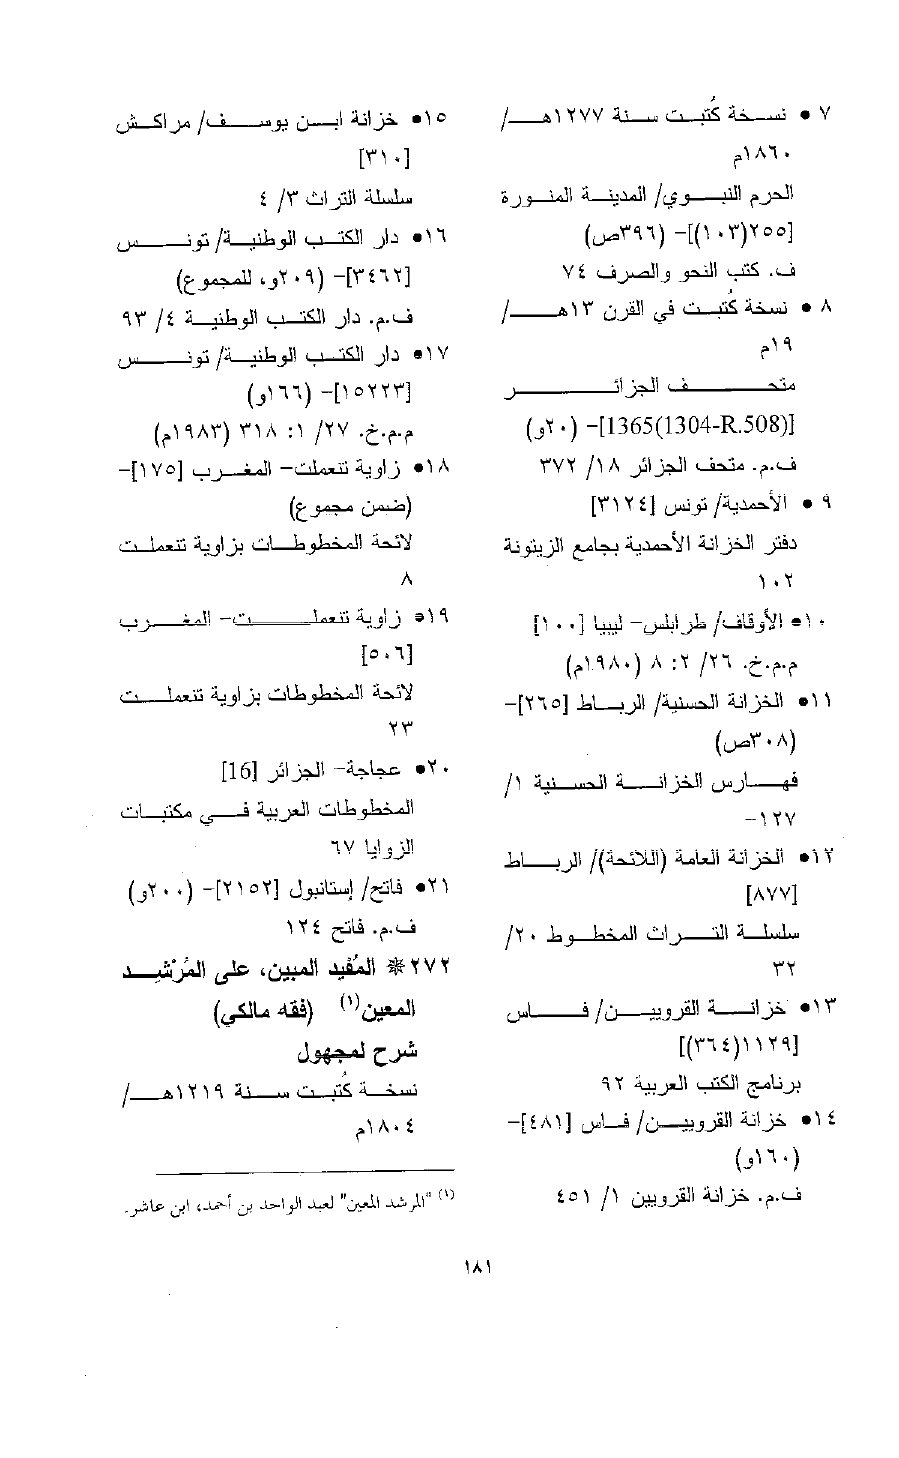 ٧ • نسخة كُتبت سنة ١٢٧٧هـ/
١٨٦٠م
الحرم النبوي/ المدينة المنورة
[٢٥٥(١٠٣)]- (٣٩٦ص)
ف. كتب النحو والصرف ٧٤
٨ • نسخة كُتبت في القرن ١٣هـ/
١٩م
متحف الجزائر
[1365(1304-R.508)]- (٢٠و)
ف.م. متحف الجزائر ١٨/ ٣٧٢
٩ • الأحمدية/ تونس [٣١٢٤]
دفتر الخزانة الأحمدية بجامع الزيتونة
١٠٢
١٠• الأوقاف/ طرابلس- ليبيا [١٠٠]
م.م.خ. ٢٦/ ٢: ٨ (١٩٨٠م)
١١• الخزانة الحسنية/ الرباط [٢٦٥]-
(٣٠٨ص)
فهارس الخزانة الحسنية ١/
١٢٧-
١٢• الخزانة العامة (اللائحة)/ الرباط
[٨٧٧]
سلسلة التراث المخطوط ٢٠/
٣٢
١٣• خزانة القرويين/ فاس
[١١٢٩(٣٦٤)]
برنامج الكتب العربية ٩٢
١٤• خزانة القرويين/ فاس [٤٨١]-
(١٦٠و)
ف.م. خزانة القرويين ١/ ٤٥١
١٥• خزانة ابن يوسف/ مراكش
[٣١٠]
سلسلة التراث ٣/ ٤
١٦• دار الكتب الوطنية/ تونس
[٣٤٦٢]- (٢٠٩و، للمجموع)
ف.م. دار الكتب الوطنية ٤/ ٩٣
١٧• دار الكتب الوطنية/ تونس
[١٥٢٢٣]- (١٦٦و)
م.م.خ. ٢٧/ ١: ٣١٨ (١٩٨٣م)
١٨• زاوية تنعملت- المغرب [١٧٥]-
(ضمن مجموع)
لائحة المخطوطات بزاوية تنعملت
٨
١٩• زاوية تنعملت- المغرب
[٥٠٦]
لائحة المخطوطات بزاوية تنعملت
٢٣
٢٠• عجاجة- الجزائر [16]
المخطوطات العربية في مكتبات
الزوايا ٦٧
٢١• فاتح/ إستانبول [٢١٥٢]- (٢٠٠و)
ف.م. فاتح ١٢٤
٢٧٢ * المُفيد المبين، على المُرْشِد
المعين(١) (فقه مالكي)
شرح لمجهول
نسخة كُتبت سنة ١٢١٩هـ/
١٨٠٤م
(١) "المرشد المعين" لعبد الواحد بن أحمد، ابن عاشر.
١٨١